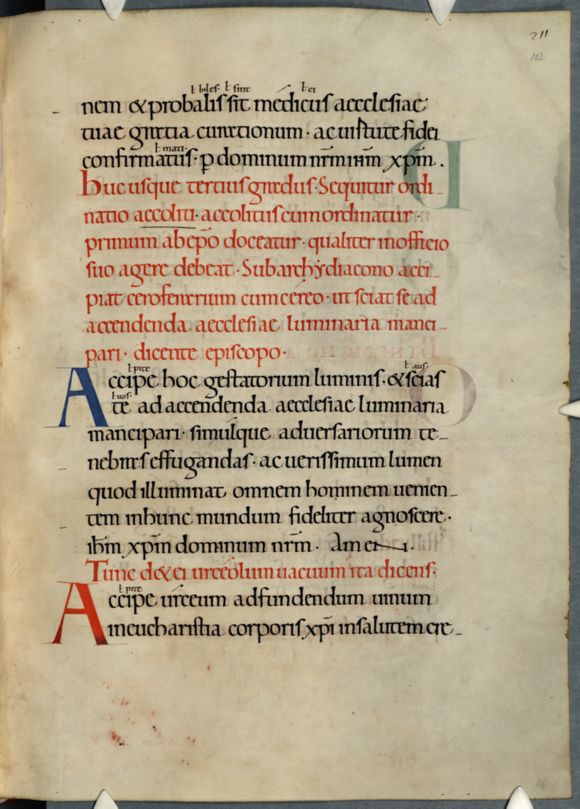 211
102
ł biles· ł sint ł ci
nem & probalis sit medicus aecclesiae
tuae gratia curationum · ac uirtute fidei
ł mati·
confirmatus · p̱ dominum nr̄m ih̄m xp̄m .
huc usque tertius gradus· Sequitur ordi
natio accoliti· accolitus cum ordinatur·
primum ab ep̄o doceatur· qualiter in officio
suo agere debeat· Sub archydiacono acci
piat ceroferarium cum cereo· ut sciat se ad
accendenda aecclesiae luminaria manci
pari· dicente episcopo·
ł pite ł atis·
Accipe hoc gestatorium luminis· & scias
ł uos·
te ad accendenda aecclesiae luminaria
mancipari· simulque aduersariorum te
nebras effugandas· ac uerissimum lumen
quod illuminat omnem hominem uenien
tem in hunc mundum fideliter agnoscere·
ih̄m xp̄m dominum nr̄m· Amen·
Tunc det ei urceolum uacuum ita dicens·
ł pite
Accipe urceum ad fundendum uinum
in eucharistia corporis xp̄i in salutem cre